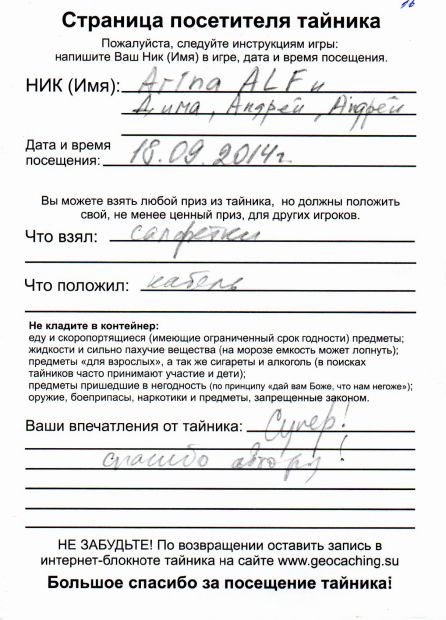 16
Страница посетителя тайника
Пожалуйста, следуйте инструкциям игры:
напишите Ваш Ник (Имя) в игре, дата и время посещения.
НИК (Имя): Arina ALF и
Дима, Андрей, Андрей
Дата и время
посещения: 18.09.2014г.
Вы можете взять любой приз из тайника, но должны положить
свой, не менее ценный приз, для других игроков.
Что взял: салфетки
Что положил: кабель
Не кладите в контейнер:
еду и скоропортящиеся (имеющие ограниченный срок годности) предметы;
жидкости и сильно пахучие вещества (на морозе емкость может лопнуть);
предметы «для взрослых», а так же сигареты и алкоголь (в поисках
тайников часто принимают участие и дети);
предметы пришедшие в негодность (по принципу «дай вам Боже, что нам негоже»);
оружие, боеприпасы, наркотики и предметы, запрещенные законом.
Ваши впечатления от тайника: Супер!
спасибо автору!
НЕ ЗАБУДЬТЕ! По возвращении оставить запись в
интернет-блокноте тайника на сайте www.geocaching.su
Большое спасибо за посещение тайника!